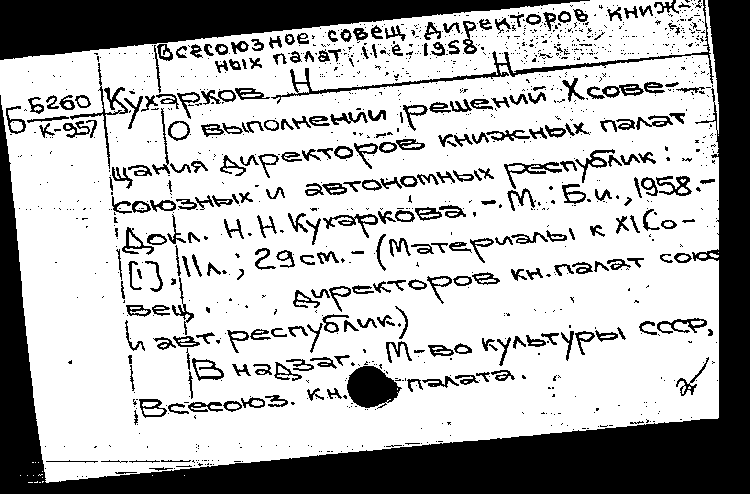 Всесоюзное совещ. директоров книж-
ных палат, 11-е. 1958.
Б Б260
К-957
Кухарков, Н Н
О выполнении решений X сове-
щания директоров книжных палат
союзных и автономных республик:
Докл. Н.Н. Кухаркова. -. М.: Б.и., 1958.-
[1], 11л.; 29 см. - (Материалы к XI Со-
вещ. . . . директоров кн. палат союз
и авт. республик.)
В надзаг.: М-во культуры СССР,
Всесоюз. кн. палата.